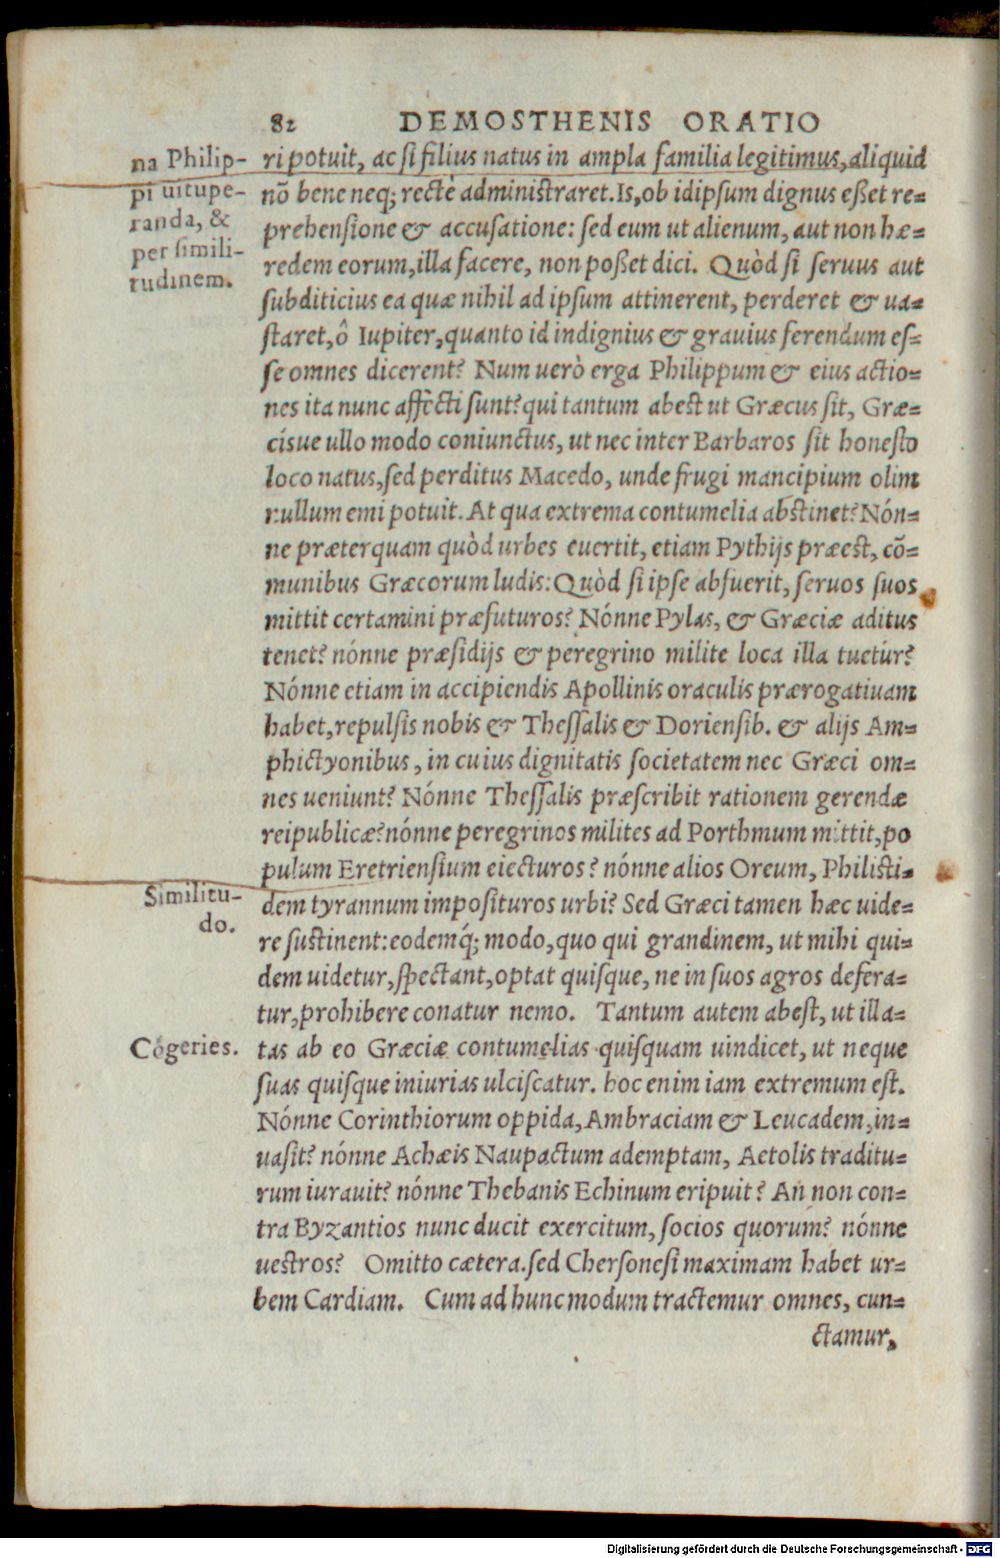 82 DEMOSTHENIS ORATIO
na Philip-
pi uitupe-
randa, &
per simili-
tudinem.
ri potuit, ac si filius natus in ampla familia legitimus, aliquid
nō bene neq; rectè administraret. Is, ob idipsum dignus eßet re-
prehensione & accusatione: sed eum ut alienum, aut non hæ-
redem eorum, illa facere, non poßet dici. Quòd si seruus aut
subditicius ea quæ nihil ad ipsum attinerent, perderet & ua-
staret, ô Iupiter, quanto id indignius & grauius ferendum es-
se omnes dicerent? Num uerò erga Philippum & eius actio-
nes ita nunc affecti sunt? qui tantum abest ut Græcus sit, Græ-
cisue ullo modo coniunctus, ut nec inter Barbaros sit honesto
loco natus, sed perditus Macedo, unde frugi mancipium olim
nullum emi potuit. At qua extrema contumelia abstinet? Nón-
ne præterquam quòd urbes euertit, etiam Pythijs præest, cō-
munibus Græcorum ludis: Quòd si ipse absuerit, seruos suos
mittit certamini præfuturos? Nónne Pylas, & Græciæ aditus
tenet? nónne præsidijs & peregrino milite loca illa tuetur?
Nónne etiam in accipiendis Apollinis oraculis prærogatiuam
habet, repulsis nobis & Thessalis & Doriensib. & alijs Am-
phictyonibus, in cuius dignitatis societatem nec Græci om-
nes ueniunt? Nónne Thessalis præscribit rationem gerendæ
reipublicæ? nónne peregrinos milites ad Porthmum mittit, po
pulum Eretriensium eiecturos? nónne alios Oreum, Philisti-
Similitu-
do.
dem tyrannum imposituros urbi? Sed Græci tamen hæc uide-
re sustinent: eodemq́; modo, quo qui grandinem, ut mihi qui-
dem uidetur, spectant, optat quisque, ne in suos agros defera-
tur, prohibere conatur nemo. Tantum autem abest, ut illa-
Cōgeries.
tas ab eo Græciæ contumelias quisquam uindicet, ut neque
suas quisque iniurias ulciscatur. hoc enim iam extremum est.
Nónne Corinthiorum oppida, Ambraciam & Leucadem, in-
uasit? nónne Achæis Naupactum ademptam, Aetolis traditu-
rum iurauit? nónne Thebanis Echinum eripuit? An non con-
tra Byzantios nunc ducit exercitum, socios quorum? nónne
uestros? Omitto cætera. sed Chersonesi maximam habet ur-
bem Cardiam. Cum ad hunc modum tractemur omnes, cun-
ctamur,
Digitalisierung gefördert durch die Deutsche Forschungsgemeinschaft - DFG